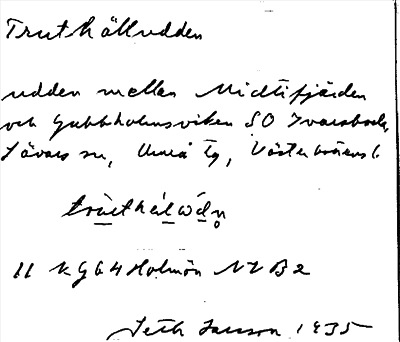 Truthälludden
udden mellan Midtifjärden
och Gubbholmsviken SO Ivarsboda,
Sävars sn, Umeå tg, Västerbottens l.
11 kg 64 Holmön NV B 2
Seth Jansson 1935